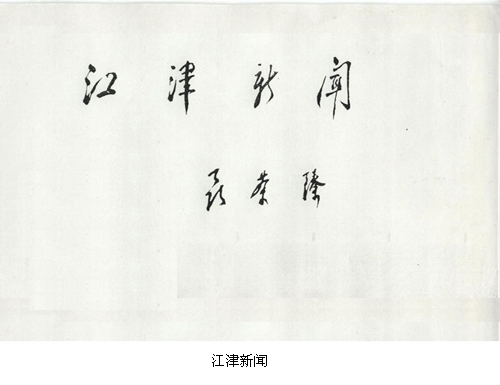 江津新闻
聂荣臻
江津新闻